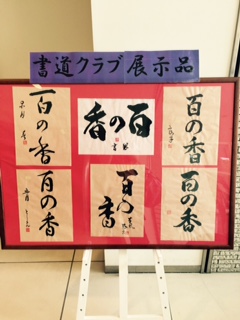 書道クラブ展示品
百の香
百の香
百の香
百の香
百の香
百の香